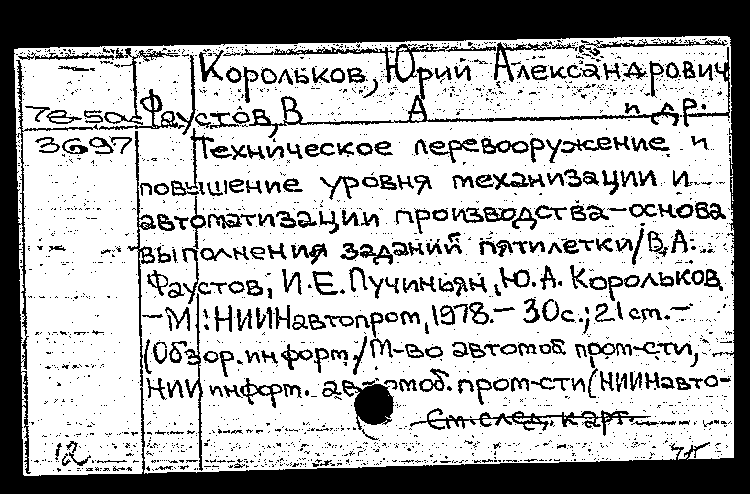 Корольков, Юрий Александрович
78-50 Фаустов, В А и др.
3697 Техническое перевооружение и
повышение уровня механизации и
автоматизации производства-основа
выполнения заданий пятилетки/В.А.
Фаустов, И.Е. Пучиньян, Ю.А. Корольков
-М.: НИИНавтопром, 1978.- 30с.; 21 см.-
(Обзор. информ./М-во автомоб. пром-сти,
НИИ информ. автомоб. пром-сти (НИИНавто-
См. след. карт.
12